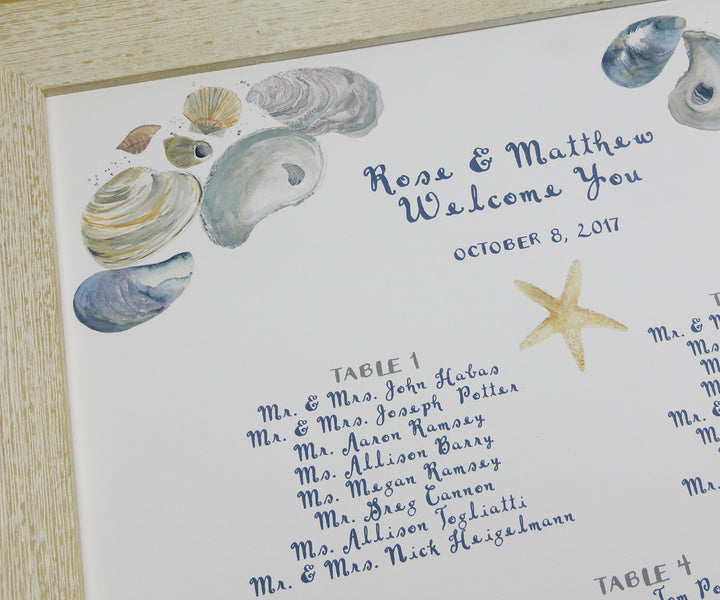 Rose & Matthew
Welcome You
OCTOBER 8, 2017
TABLE 1
Mr. & Mrs. John Habas
Mr. & Mrs. Joseph Potter
Mr. Aaron Ramsey
Ms. Allison Barry
Ms. Megan Ramsey
Mr. Greg Cannon
Ms. Allison Togliatti
Mr. & Mrs. Nick Heigelmann
Mr. &
Ms.
Mr. &
Mr. &
TABLE 4
Tom